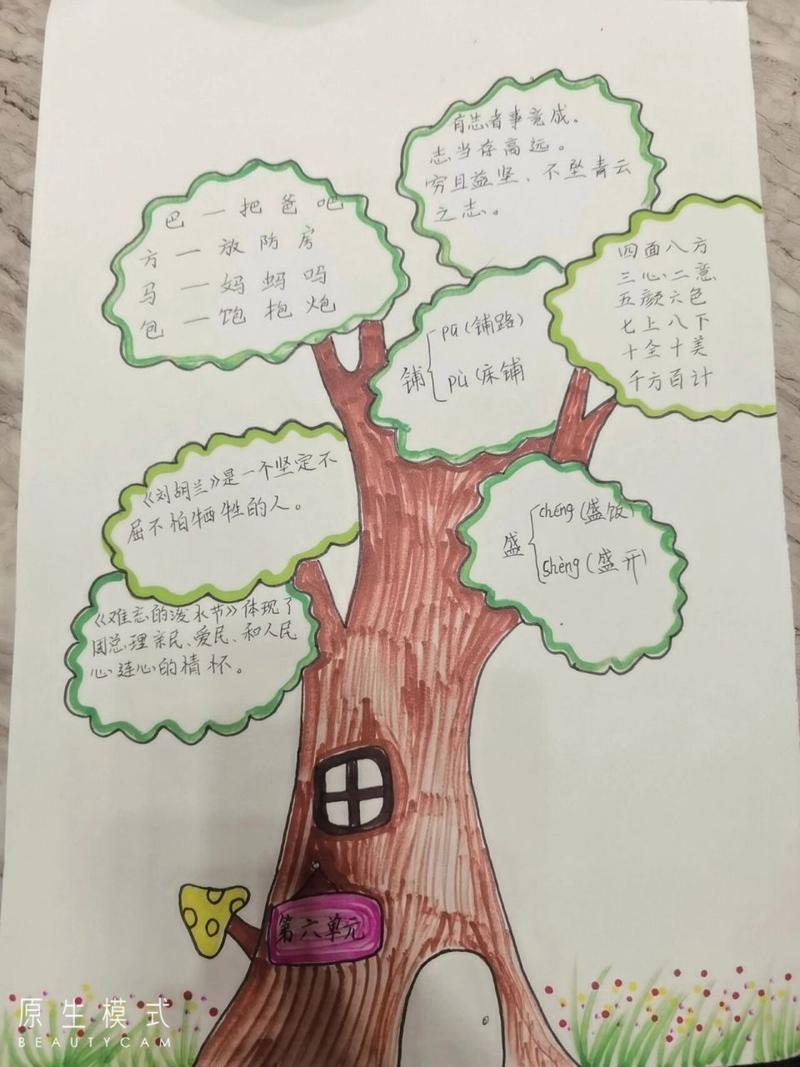 有志者事竟成。
志当存高远。
穷且益坚、不坠青云
之志。
巴 一 把 爸 吧
方 一 放 防 房
马 一 妈 蚂 吗
包 一 饱 抱 炮
四面八方
三心二意
五颜六色
七上八下
十全十美
千方百计
铺
pū(铺路)
pù(床铺
《刘胡兰》是一个坚定不
屈不怕牺牲的人。
盛
chéng(盛饭)
shèng(盛开)
《难忘的泼水节》体现了
周总理亲民、爱民、和人民
心连心的情怀。
第六单元
原生模式
BEAUTYCAM